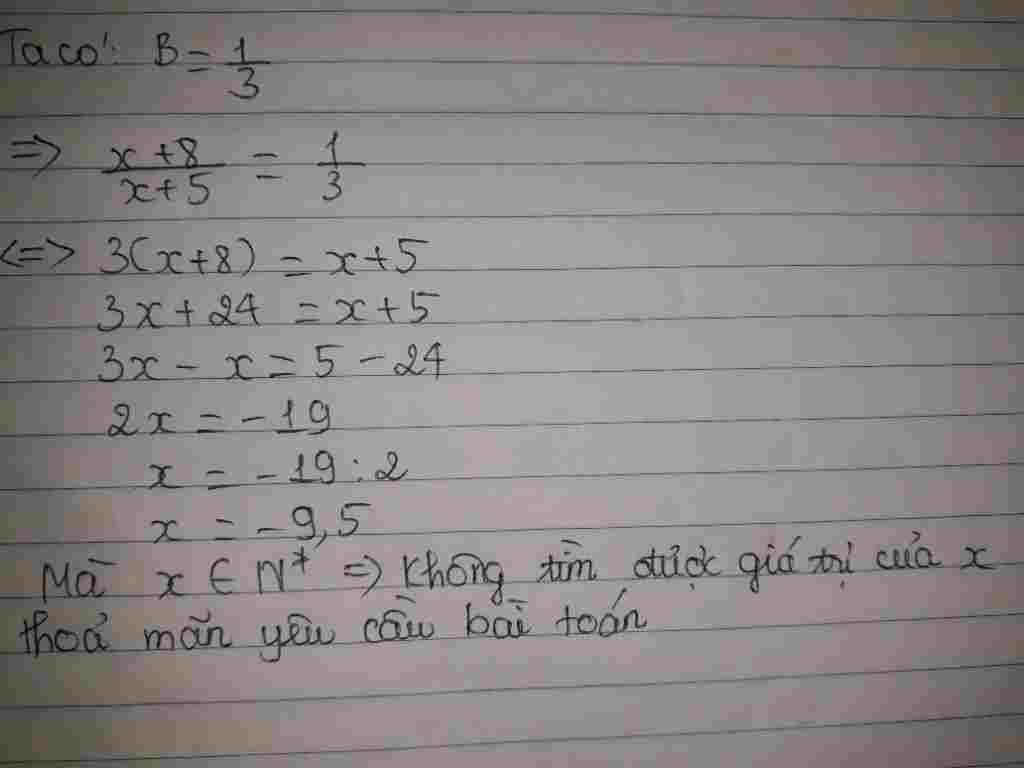 Ta có: B = 1/3
=> x+8/x+5 = 1/3
<=> 3(x+8) = x+5
3x + 24 = x+5
3x - x = 5 - 24
2x = -19
x = -19 : 2
x = -9,5
Mà x ∈ N* => Không tìm được giá trị của x
thoả mãn yêu cầu bài toán